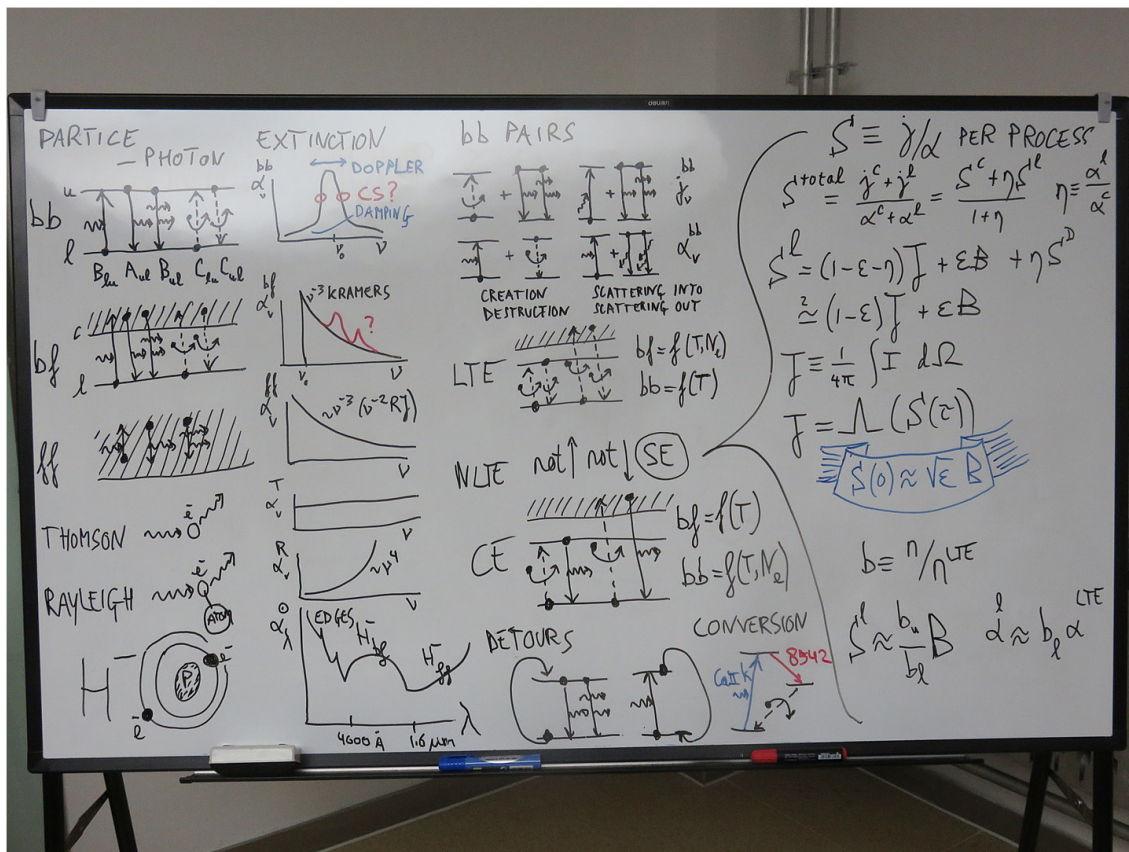 deli
PARTICE
– PHOTON
bb
u
l
B_lu A_ul B_ul C_lu C_ul
bf
c
l
ff
THOMSON
e⁻
RAYLEIGH
e⁻
ATOM
H⁻
P
e⁻
e⁻
EXTINCTION
α_ν^bb
DOPPLER
CS?
DAMPING
ν₀
ν
α_ν^bf
ν⁻³ KRAMERS
?
ν₀
ν
α_ν^ff
~ν⁻³ (ν⁻² RJ)
ν
α_ν^T
ν
α_ν^R
~ν⁴
ν
α_λ^⊙
EDGES
H⁻_bf
H⁻_ff
4000 Å
1.6 μm
λ
bb PAIRS
+
+
j_ν^bb
+
+
α_ν^bb
CREATION
DESTRUCTION
SCATTERING INTO
SCATTERING OUT
LTE
bf = f(T,N_e)
bb = f(T)
NLTE
not ↑ not ↓ SE
CE
bf = f(T)
bb = f(T,N_e)
DETOURS
CONVERSION
CaII K
8542
S ≡ j/α PER PROCESS
S^total = (j^c + j^l)/(α^c + α^l) = (S^c + ηS^l)/(1+η) η ≡ α^l/α^c
S^l = (1-ε-η) J̅ + εB + ηS^D
≟ (1-ε) J̅ + εB
J ≡ 1/4π ∫ I dΩ
J = Λ (S(τ))
S(0) ≈ √ε B
b ≡ n/n^LTE
S^l ≈ b_u/b_l B α^l ≈ b_l α^LTE